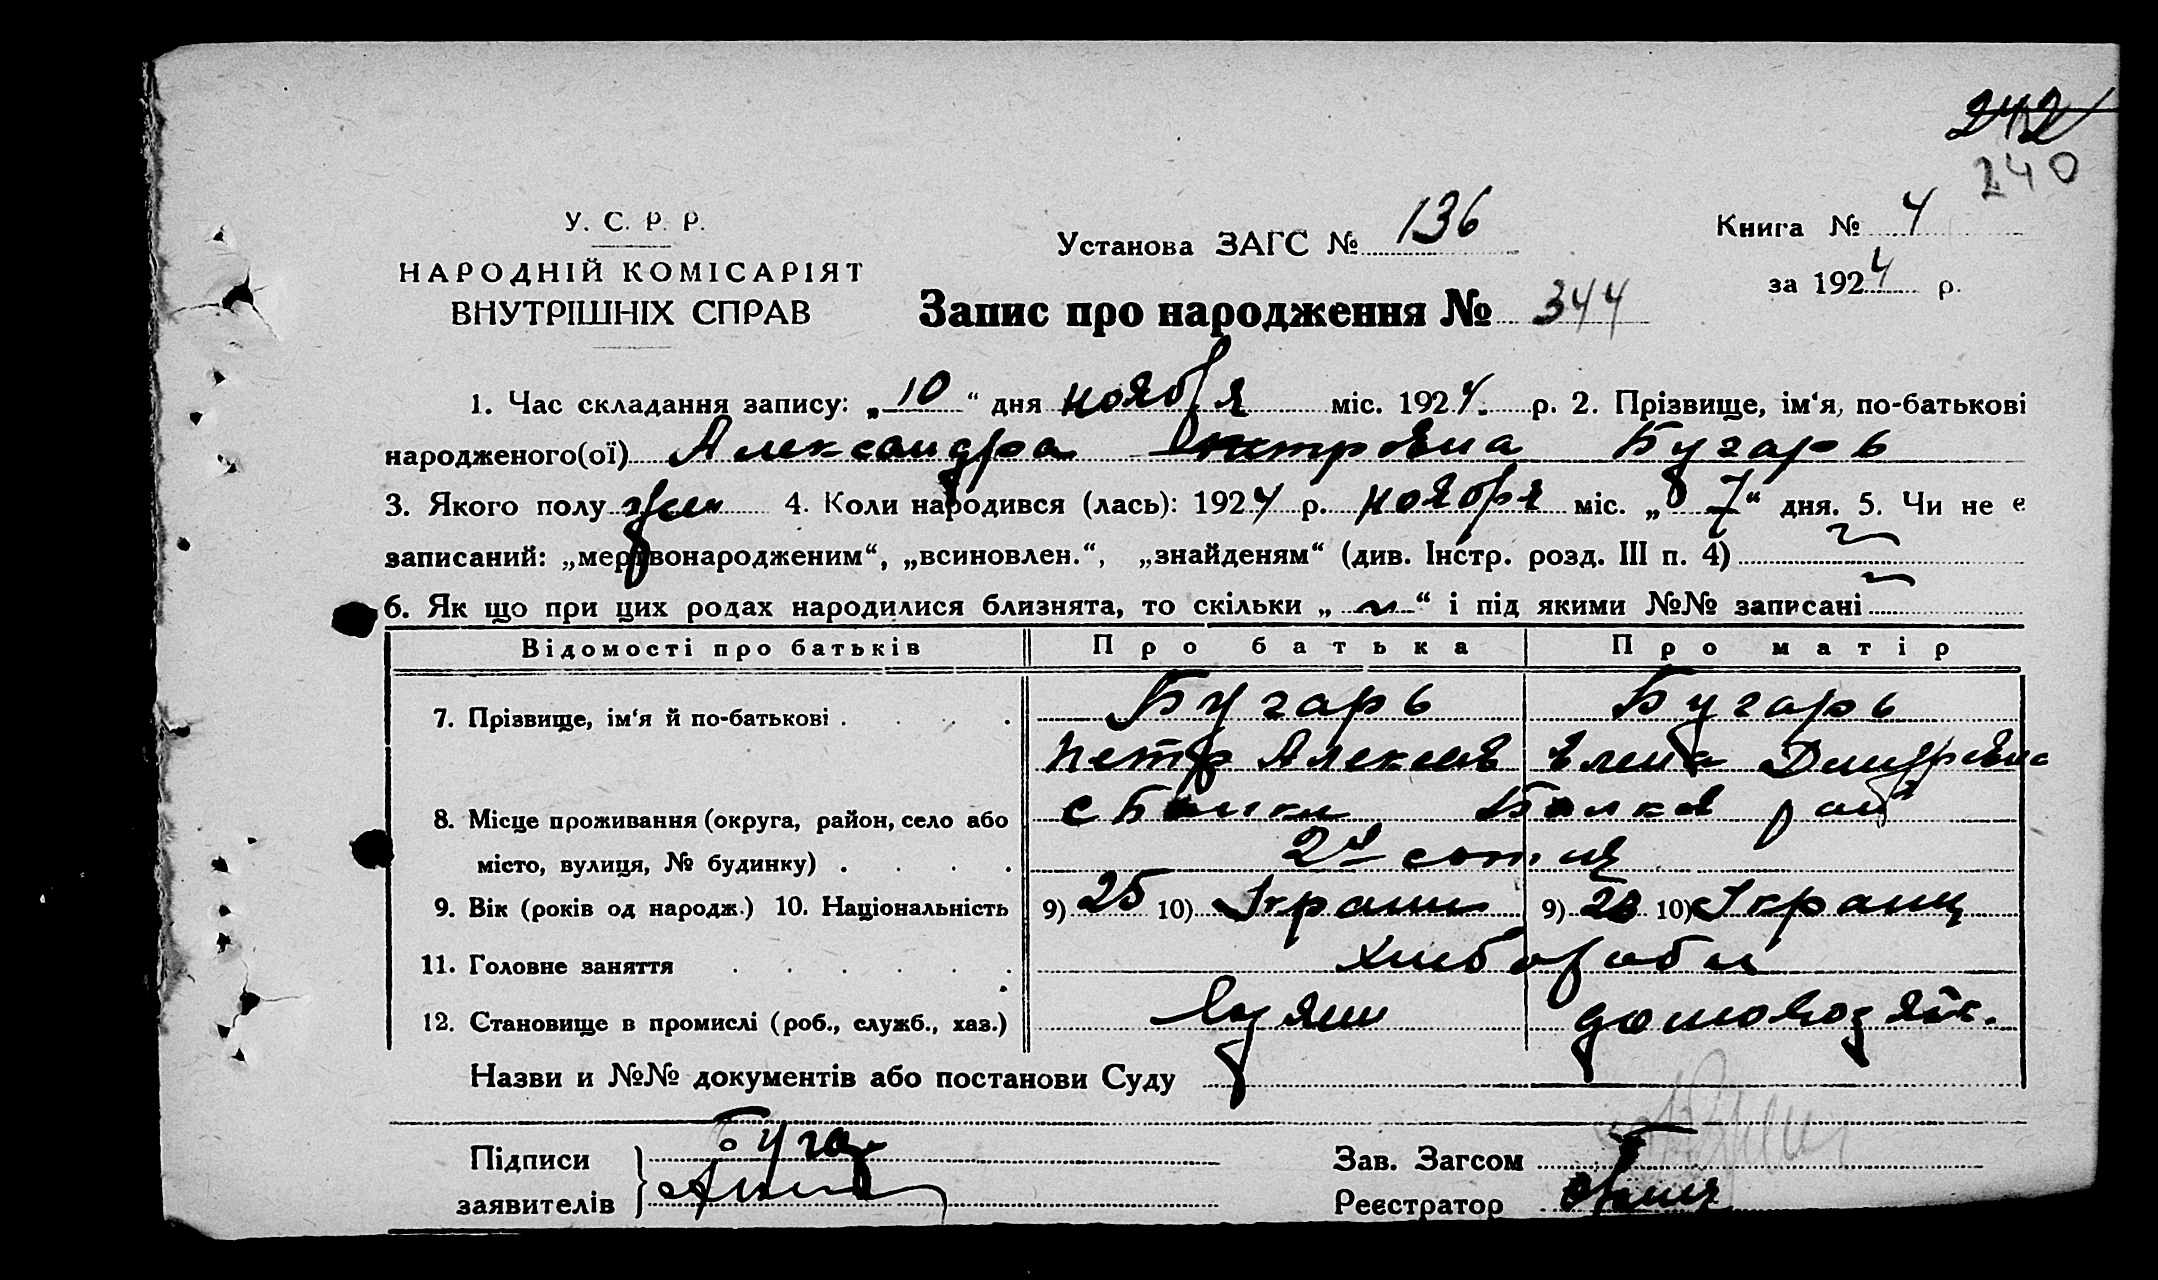 242
240
У. С. Р. Р.
НАРОДНІЙ КОМІСАРІЯТ
ВНУТРІШНІХ СПРАВ
Установа ЗАГС № 136
Книга № 4
за 1924 р.
Запис про народження № 344
1. Час складання запису: „10“ дня ноября міс. 1924. р. 2. Прізвище, ім‘я, по-батькові
народженого(ої) Александра Бугарь
3. Якого полу жен 4. Коли народився (лась): 1924 р. ноября міс. „7“ дня. 5. Чи не є
записаний: „мертвонародженим“, „всиновлен.“, „знайденям“ (див. Інстр. розд. III п. 4)
6. Як що при цих родах народилися близнята, то скільки „ “ і під якими №№ записані
Відомості про батьків Про батька Про матір
7. Прізвище, ім‘я й по-батькові . . . . Бугарь Бугарь
Петр Алексеев Елена
8. Місце проживання (округа, район, село або с Балки
місто, вулиця, № будинку) . . . . 2я сотня
9. Вік (років од народж.) 10. Національність 9) 25 10) 9) 23 10)
11. Головне заняття . . . . . . хлебороби
12. Становище в промислі (роб., служб., хаз.)
Назви и №№ документів або постанови Суду
Підписи
заявителів
Зав. Загсом
Реєстратор